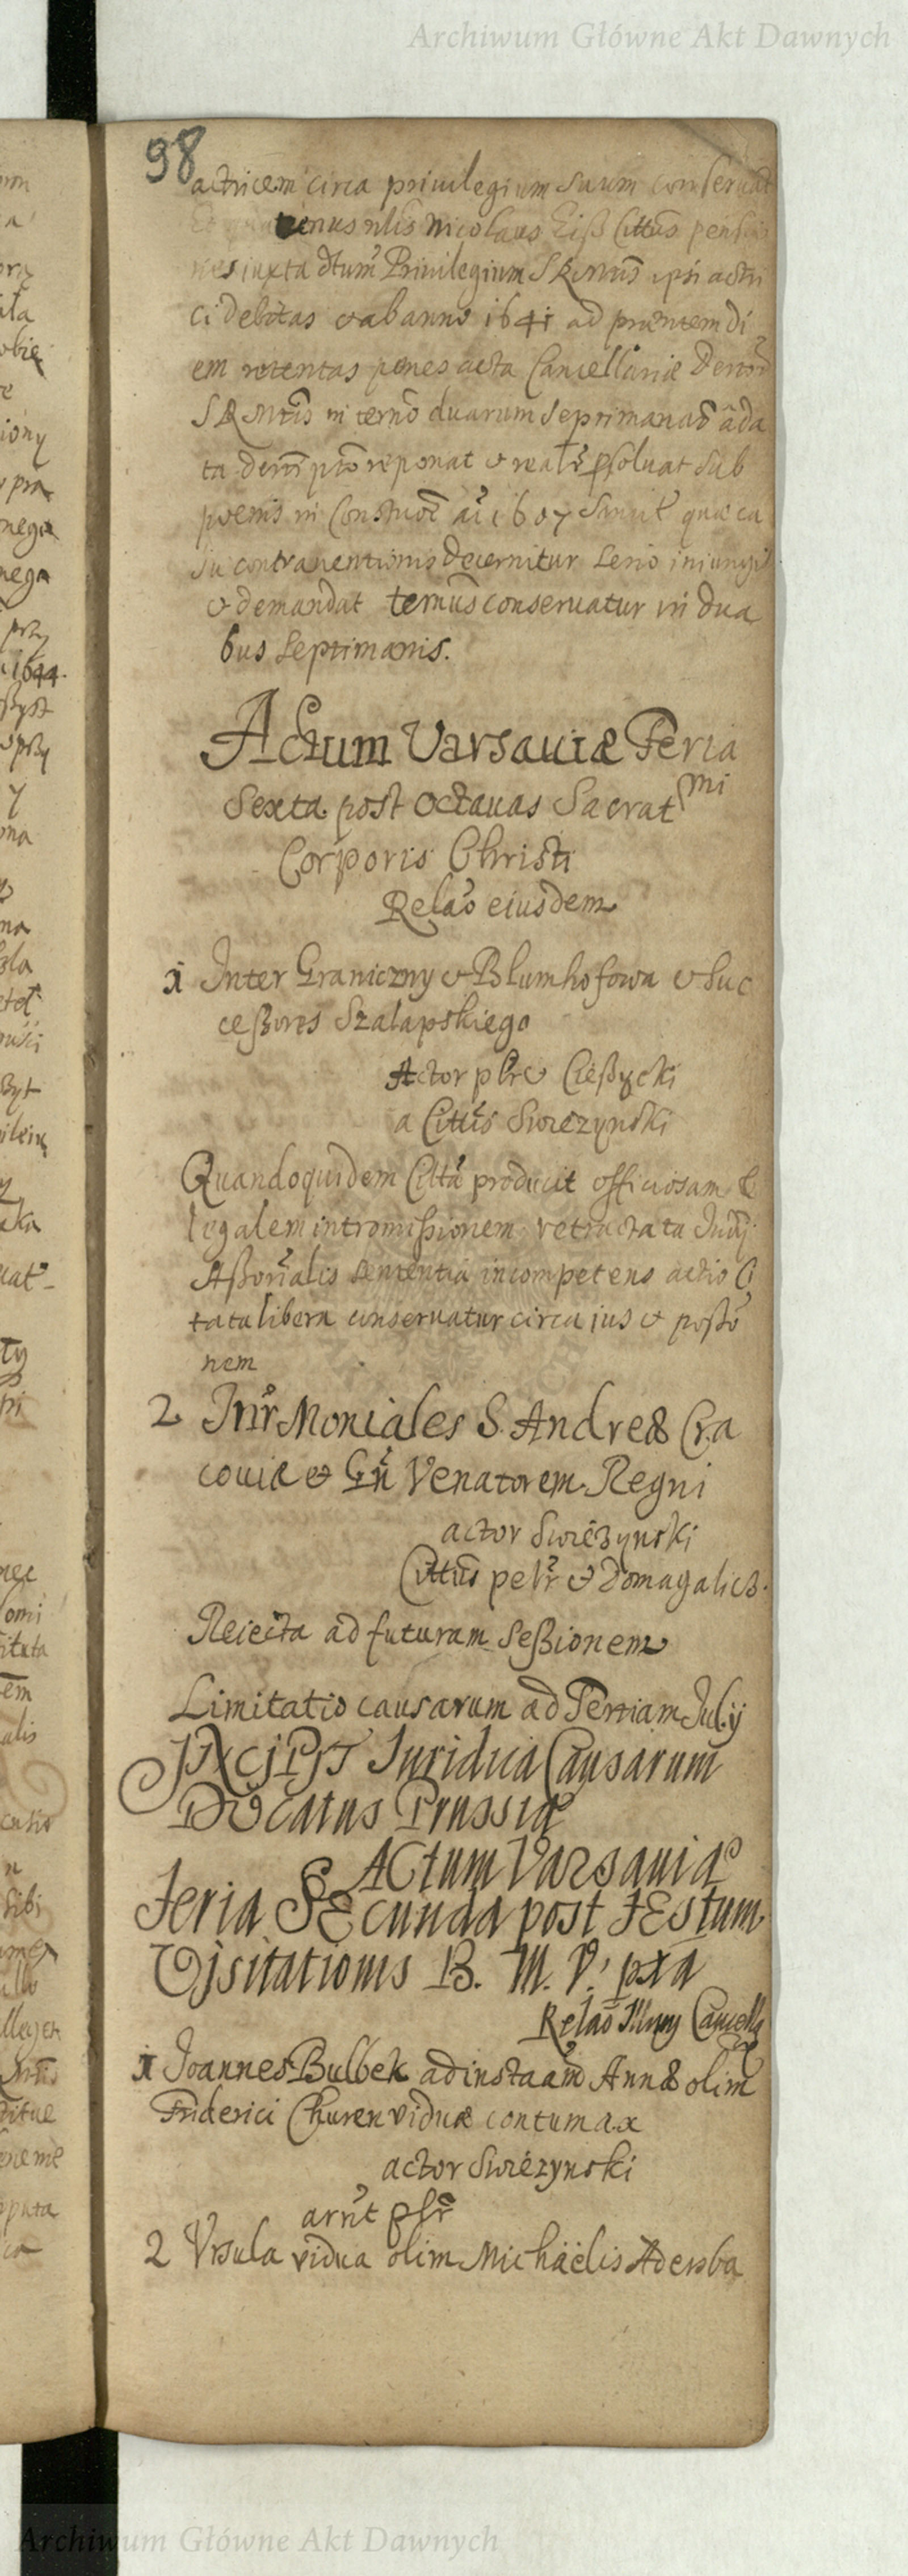 Archiwum Główne Akt Dawnych
98
actricem circa privilegium suum conservat
nus nlis Nicolaus Eiß Cittus pensio
nes iuxta dtum Privilegium SRMtis ipsi actri
ci debitas et ab anno 1641 ad prntem di
em retentas penes acta Cancellariæ
SRMttis in terno duarum septimanaru a da
ta prto reponat et realr psoluat sub
poenis in Constuoe ai 1607 quæ ca
su contraventionis decernitur serio iniungit
et demandat ternus conservatur in dua
bus septimanis.
Actum Varsaviæ Feria
Sexta post octavas Sacratmi
Corporis Christi
Relao eiusdem
1 Inter Graniczny et Blumhofowa et Suc
ceßores Szalapskiego
Actor Cießycki
a Cittis Swiezynski
Quandoquidem Citta producit officiosam &
legalem intromißionem retractata Judy
Aßorialis sententia incompetens actio Ci
tata libera conservatur circa ius et poßio
nem
2 Intr Moniales S. Andreæ Cra
coviæ et Gn Venatorem Regni
actor Swiezynski
Cittus petr et Domagalicz.
Reiecta ad futuram Seßionem
Limitatio causarum ad Tertiam Julij
Incipit Iuridica Causarum
Ducatus Prussiæ
Actum Varsaviæ
Feria Secunda post Festum
Visitationis B. M. V. pxa
Relao Illmy Cancella
1 Joannes Bulbek ad instaam Annæ olim
Friderici Churen viduæ contumax
actor Swiezynski
arnt psr
2 Ursula vidua olim Michäelis Adersba
Archiwum Główne Akt Dawnych